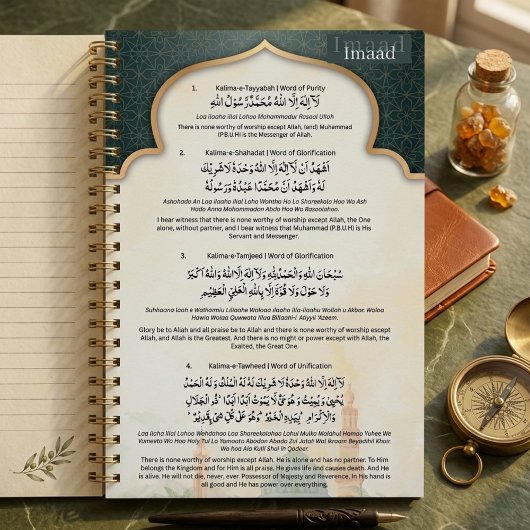 Imaad
Imaad
1. Kalima-e-Tayyabah | Word of Purity
لَآ اِلٰهَ اِلَّا اللهُ مُحَمَّدٌ رَّسُوْلُ اللهِ
Laa ilaaha illal Lahoo Mohammadur Rasool Ulloh
There is none worthy of worship except Allah, (and) Muhammad
(P.B.U.H) is the Messenger of Allah.
2. Kalima-e-Shahadat | Word of Glorification
اَشْهَدُ اَنْ لَّآ اِلٰهَ اِلَّا اللهُ وَحْدَهٗ لَا شَرِيْكَ
لَهٗ وَاَشْهَدُ اَنَّ مُحَمَّدًا عَبْدُهٗ وَرَسُوْلُهٗ
Ashohado An Laa ilaaha illal Laho Wahtha Ho La Shareekalo Hoo Wa Ash
Hado Anna Mohammadon Abdo Hoo Wo Rasoolahoo.
I hear witness that there is none worthy of worship except Allah, the One
alone, without partner, and I bear witness that Muhammad (P.B.U.H) is His
Servant and Messenger.
3. Kalima-e-Tamjeed | Word of Glorification
سُبْحَانَ اللهِ وَالْحَمْدُ لِلّٰهِ وَلَآ اِلٰهَ اِلَّا اللهُ وَاللهُ اَكْبَرُ
وَلَا حَوْلَ وَلَا قُوَّةَ اِلَّا بِاللهِ الْعَلِيِّ الْعَظِيْمِ
Suhhaana laah e Wathamiu Liliaahe Walaaa ilaaha illa-ilaahu Wallah u Akbar. Walaa
Hawla Walaa Quwwata Nua Billaahi-l Atiyyil 'Azeem.
Glory be to Allah and all praise be to Allah and there is none worthy of worship except
Allah, and Allah is the Greatest. And there is no might or power except with Allah, the
Exalted, the Great One.
4. Kalima-e-Tawheed | Word of Unification
لَآ اِلٰهَ اِلَّا اللهُ وَحْدَهٗ لَا شَرِيْكَ لَهٗ لَهُ الْمُلْكُ وَ لَهُ الْحَمْدُ
يُحْيٖ وَ يُمِيْتُ وَ هُوَ حَيٌّ لَّا يَمُوْتُ اَبَدًا اَبَدًا ذُو الْجَلَالِ
وَالْاِكْرَامِ بِيَدِهِ الْخَيْرُ وَهُوَ عَلٰى كُلِّ شَيْءٍ قَدِيْرٌ
Laa ilaha illal Lahoo Wehdahoo Laa Shareekalahoo Lahul Mulko Walahul Hamdo Yuhee We
Yumeeto Wo Hoo Holy Tul La Yamooto Abadan Abada Zul Jalali Wal Ikraam Beyadihil Khair.
Wa hoa Ala Kulli Shai In Qodeer.
There is none worthy of worship except Allah. He is alone and has no partner. To Him
belongs the Kingdom and for Him is all praise. He gives life and causes death. And He
is alive. He will not die, never, ever. Possessor of Majesty and Reverence, In his hand is
all good and He has power over everything.